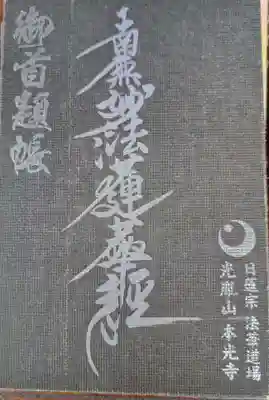 南無妙法蓮華経
御首題帳
日蓮宗 法華道場
光胤山 本光寺